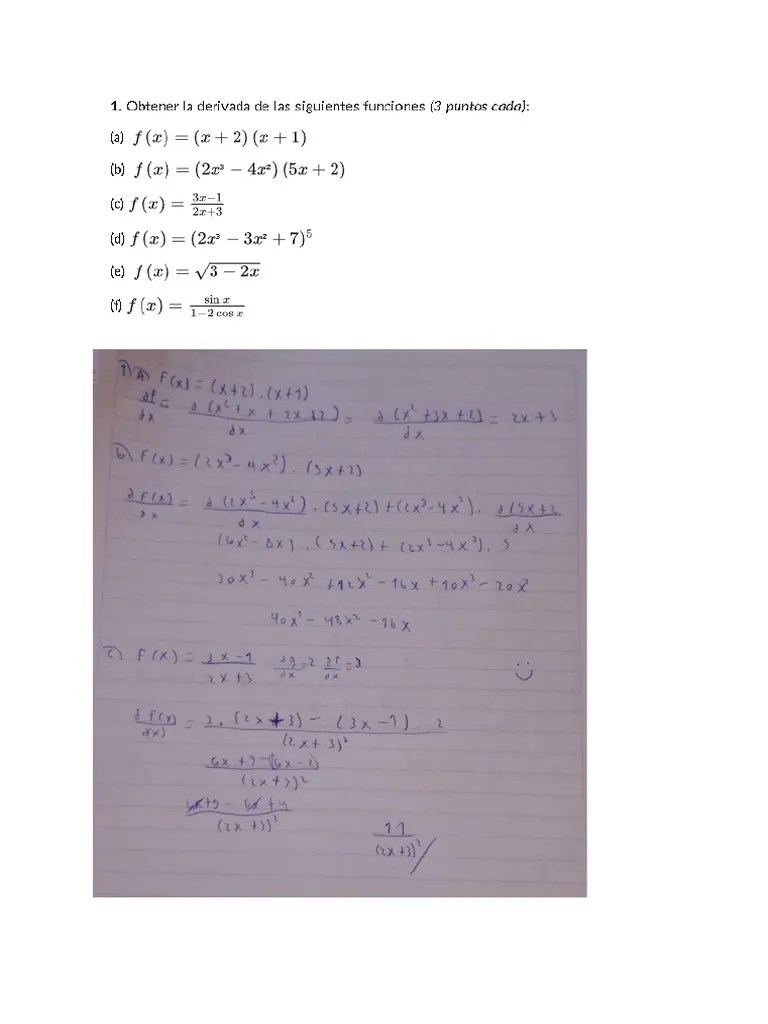 1. Obtener la derivada de las siguientes funciones (3 puntos cada):
(a) f (x) = (x + 2) (x + 1)
(b) f (x) = (2x³ − 4x²) (5x + 2)
(c) f (x) = 3x−1 / 2x+3
(d) f (x) = (2x³ − 3x² + 7)⁵
(e) f (x) = √3 − 2x
(f) f (x) = sin x / 1−2 cos x
1) A) F(x) = (x+2) . (x+1)
∂f/∂x = ∂(x²+x+2x+2)/∂x = ∂(x²+3x+2)/∂x = 2x+3
b) F(x) = (2x³−4x²) . (5x+2)
∂F(x)/∂x = ∂(2x³−4x²)/∂x . (5x+2)+(2x³−4x²). ∂(5x+2/∂x
(6x²−8x) . (5x+2)+ (2x³−4x²). 5
30x³− 40x² +12x²−16x +10x³−20x²
40x³− 48x² −16x
c) F(x) = 3x−1/2x+3 ∂g/∂x=2 ∂f/∂x=3
∂F(x)/∂(x) = 3.(2x+3)−(3x−1).2/(2x+3)²
6x+9−(6x−2)/(2x+3)²
6x+9−6x+4/(2x+3)² 11/(2x+3)²/